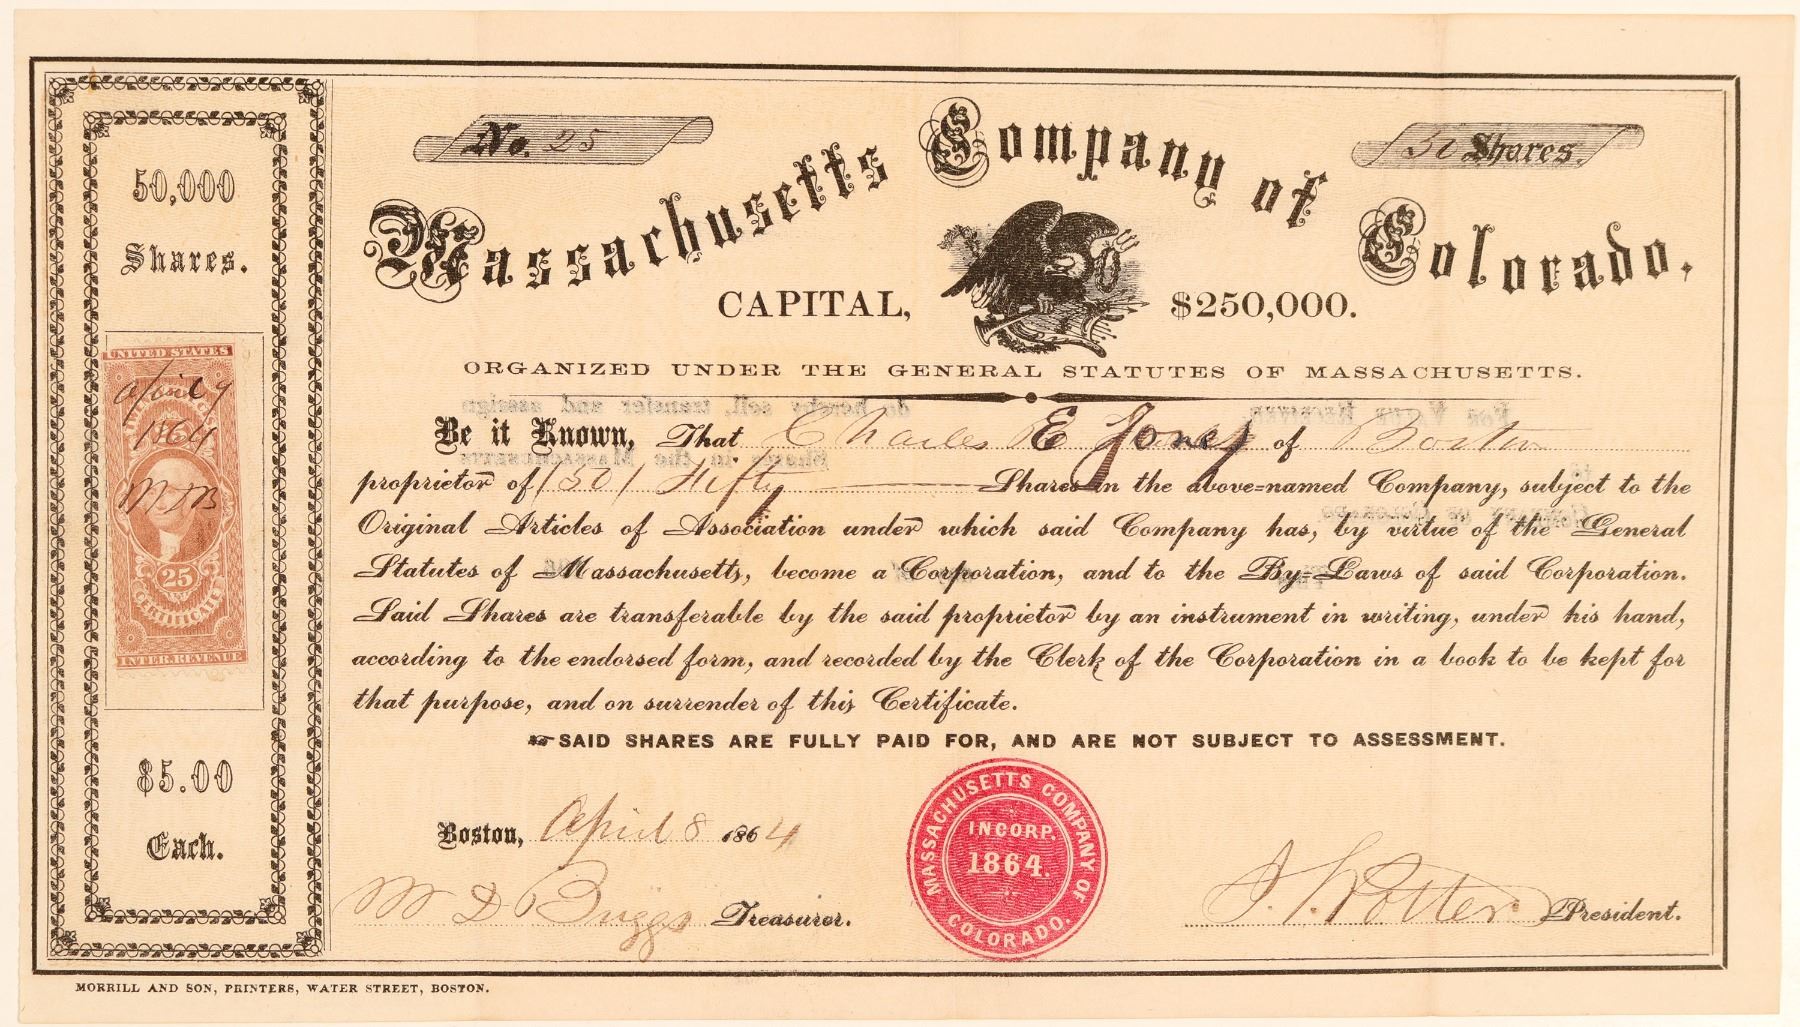 No. 25
50 Shares.
Massachusetts Company of Colorado,
CAPITAL, $250,000.
ORGANIZED UNDER THE GENERAL STATUTES OF MASSACHUSETTS.
Be it Known, That Charles E Jones of Boston
proprietor of (50) Fifty Shares in the above=named Company, subject to the
Original Articles of Association under which said Company has, by virtue of the General
Statutes of Massachusetts, become a Corporation, and to the By=Laws of said Corporation.
Said Shares are transferable by the said proprietor by an instrument in writing, under his hand,
according to the endorsed form, and recorded by the Clerk of the Corporation in a book to be kept for
that purpose, and on surrender of this Certificate.
☞SAID SHARES ARE FULLY PAID FOR, AND ARE NOT SUBJECT TO ASSESSMENT.
Boston, April 8 1864
M D Briggs Treasurer.
Potter President.
MASSACHUSETTS COMPANY OF COLORADO.
INCORP.
1864.
50,000
Shares.
UNITED STATES
1864
MDB
25
CERTIFICATE
INTER. REVENUE
$5.00
Each.
MORRILL AND SON, PRINTERS, WATER STREET, BOSTON.